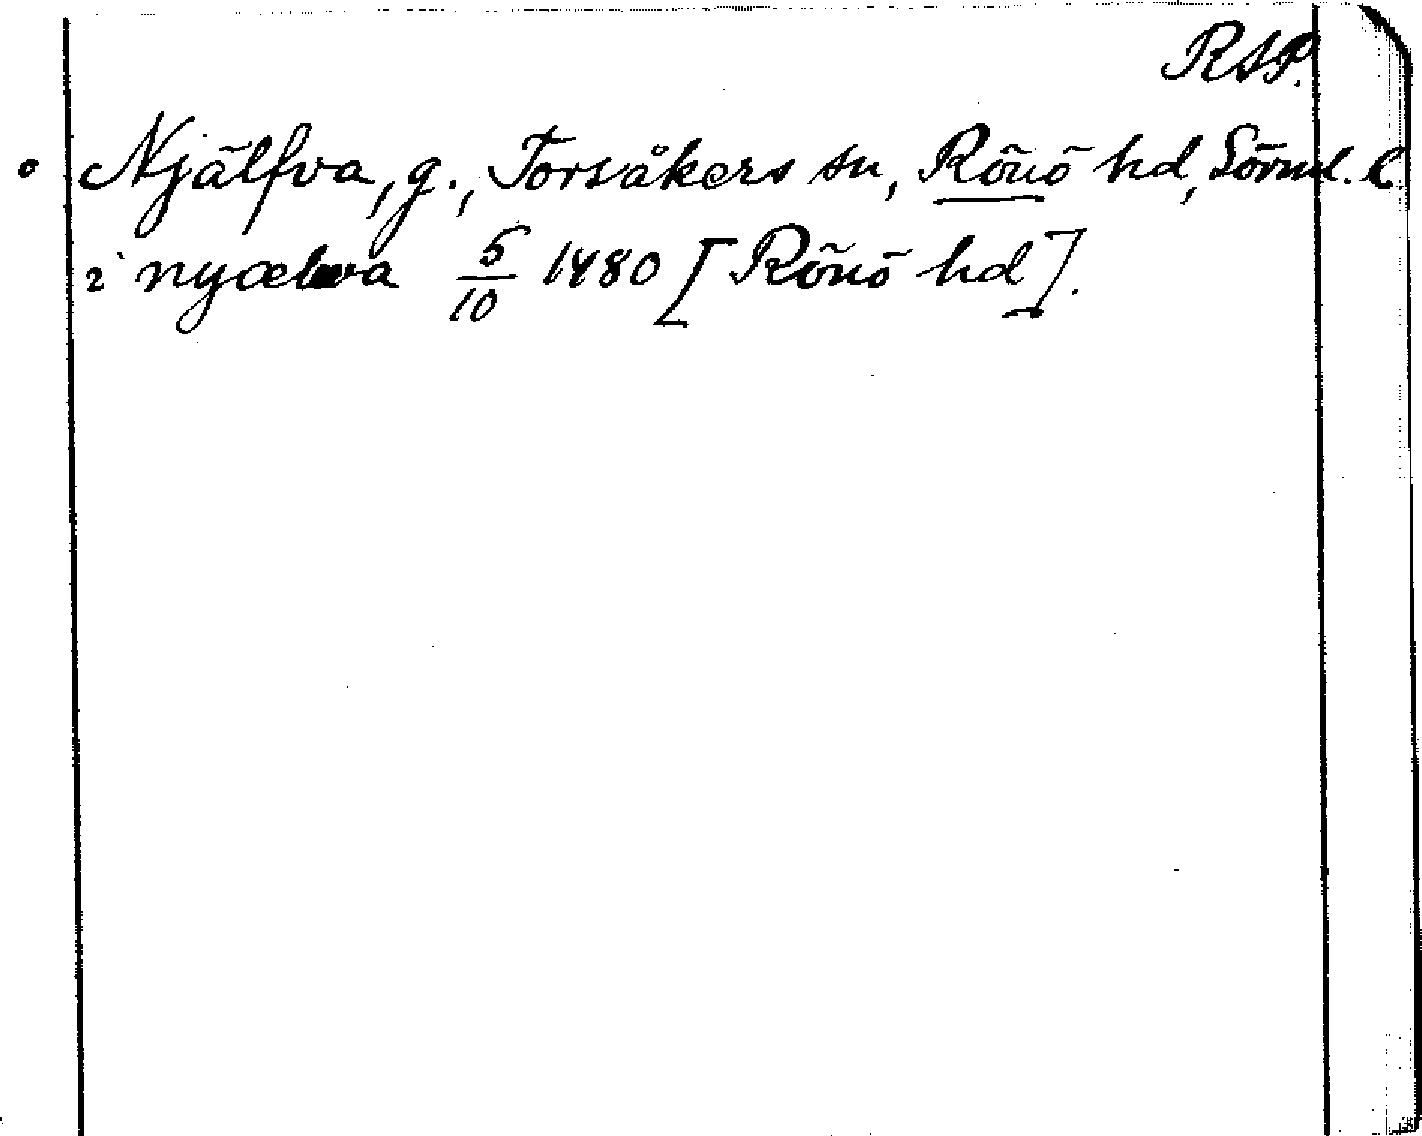 RAP.
° Njälfva, g., Torsåkers sn, Rönö hd, Sörml. l.
i nyælwa 5/10 1480 [Rönö hd].